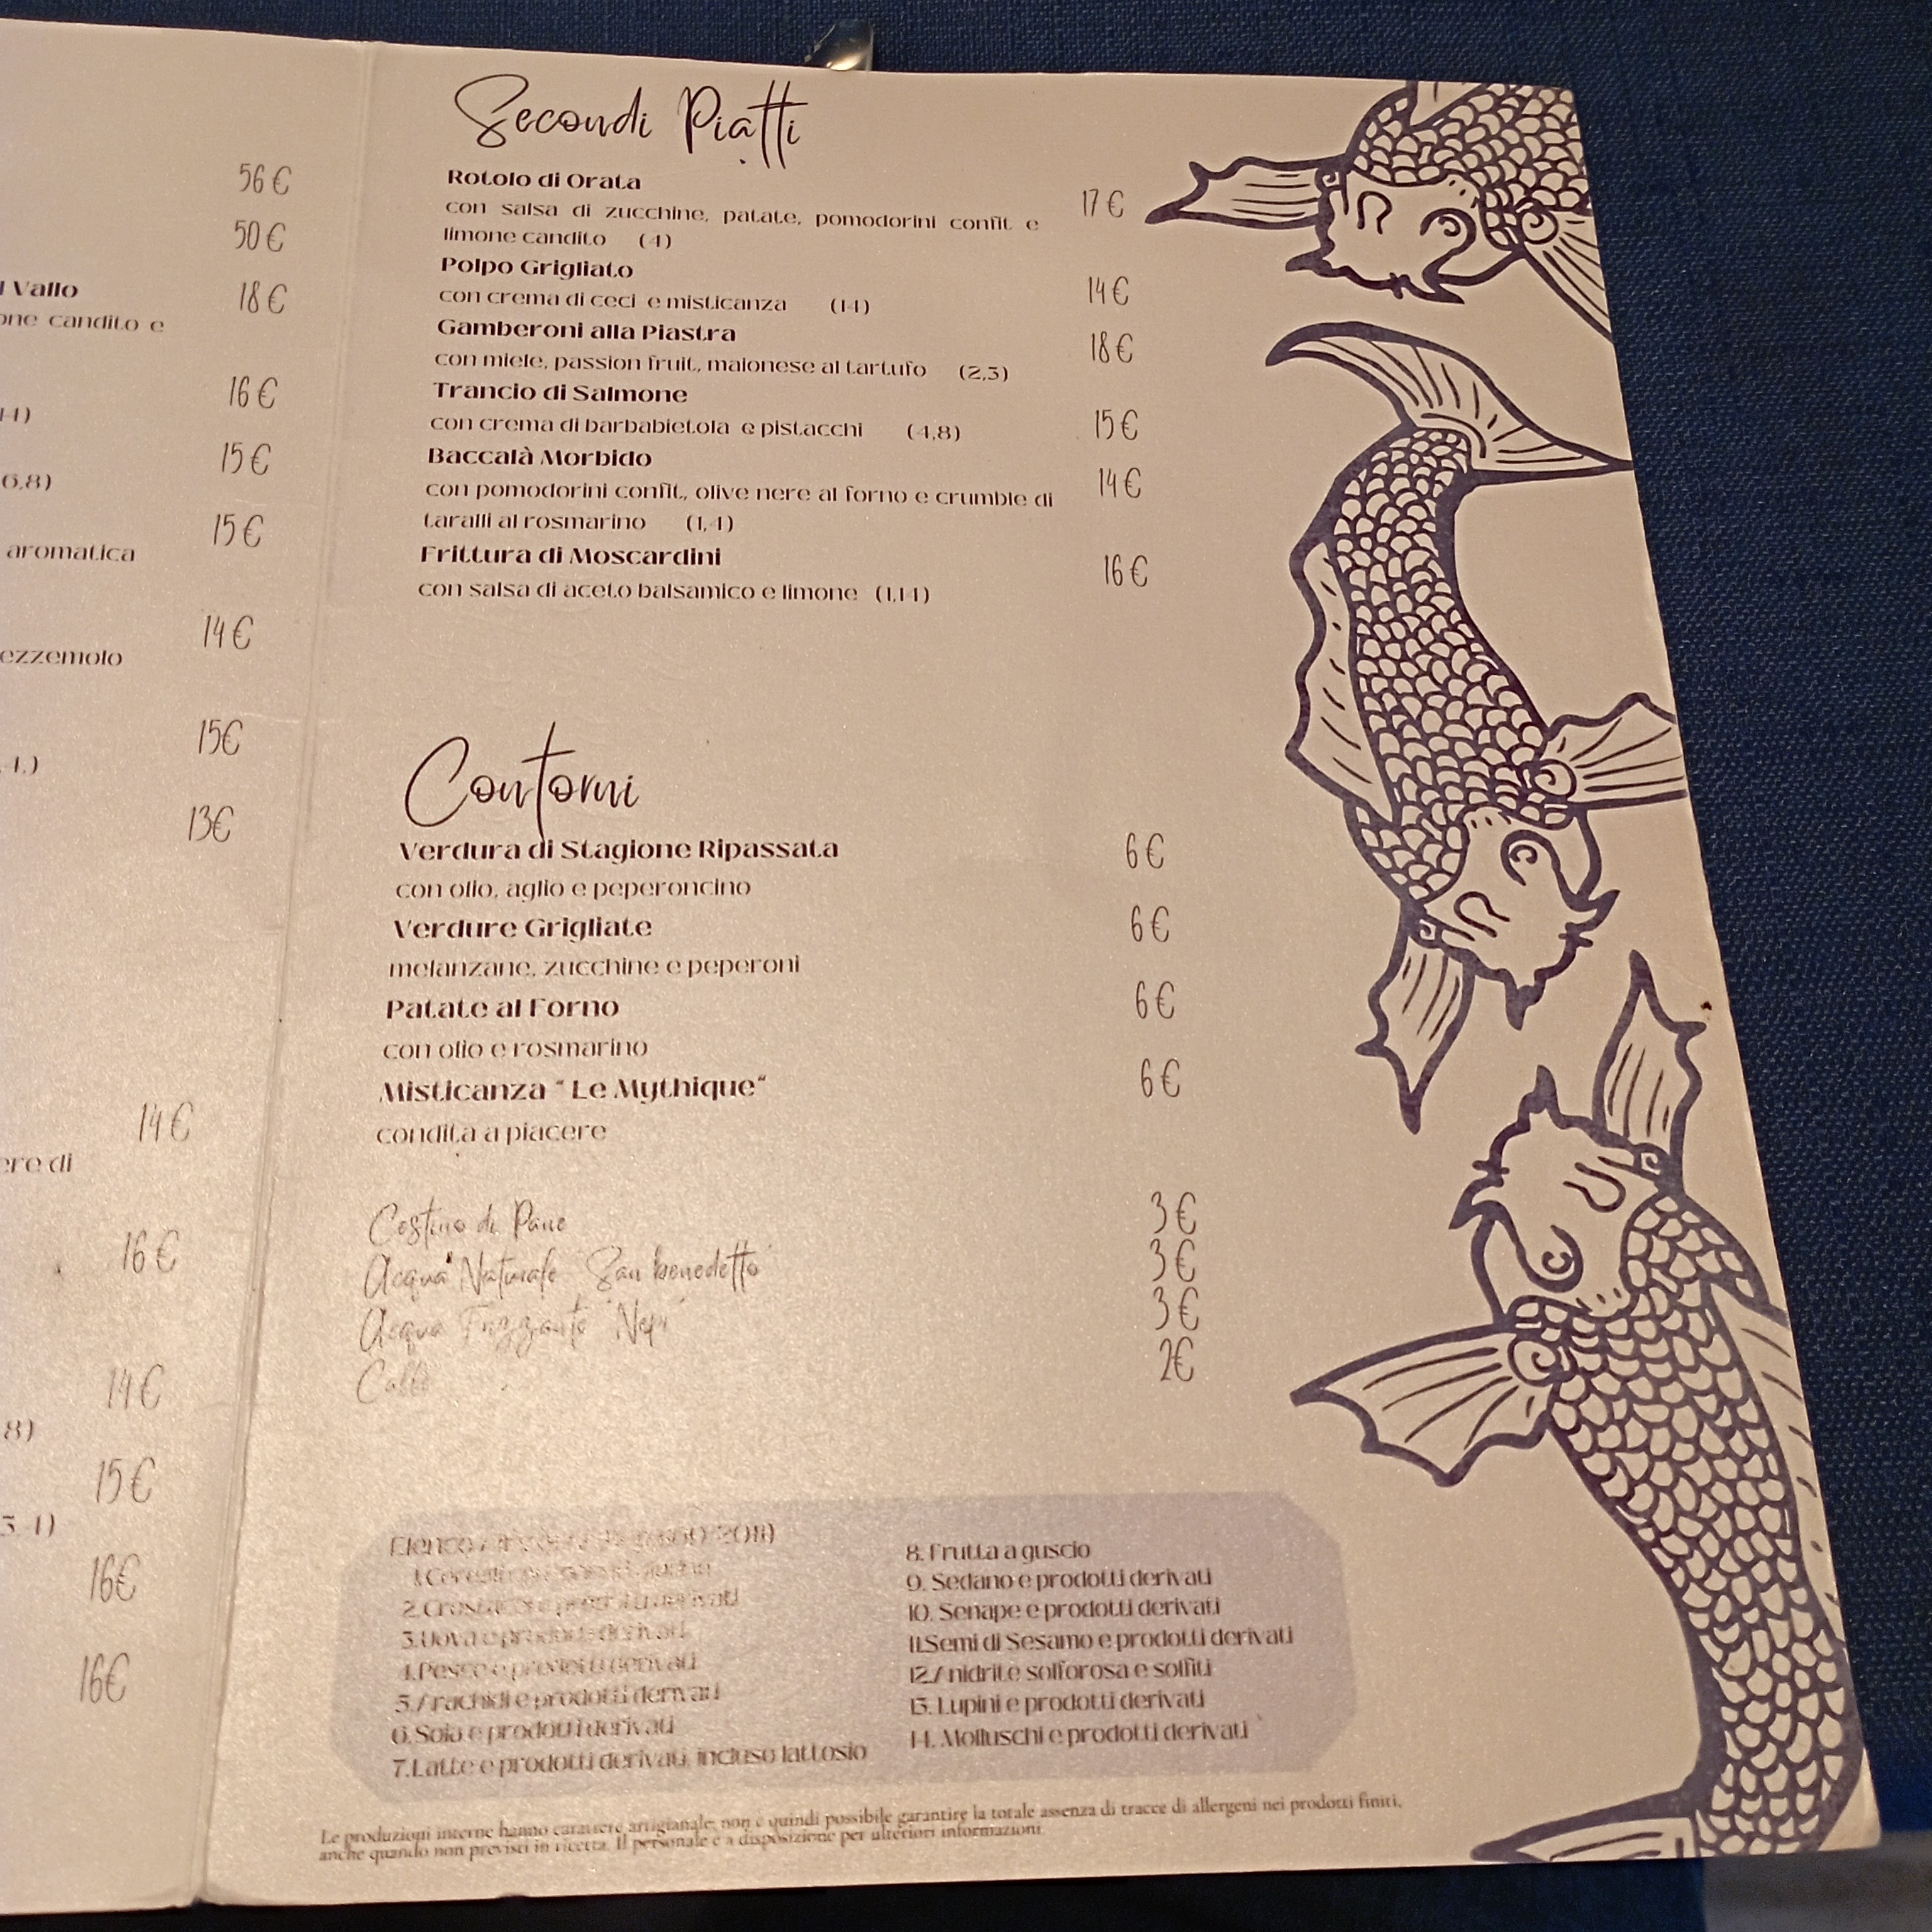 56 €
50 €
l Vallo
18 €
one candito e
16 €
15 €
6,8)
15 €
aromatica
14 €
ezzemolo
15€
13€
14 €
ere di
16 €
14 €
8)
15 €
16€
16€
Secondi Piatti
Rotolo di Orata
con salsa di zucchine, patate, pomodorini confit e 17 €
limone candito (4)
Polpo Grigliato
con crema di ceci e misticanza (14) 14 €
Gamberoni alla Piastra
con miele, passion fruit, maionese al tartufo (2,3) 18 €
Trancio di Salmone
con crema di barbabietola e pistacchi (4,8) 15 €
Baccalà Morbido
con pomodorini confit, olive nere al forno e crumble di 14 €
taralli al rosmarino (1,4)
Frittura di Moscardini 16 €
con salsa di aceto balsamico e limone (1,14)
Contorni
Verdura di Stagione Ripassata 6 €
con olio, aglio e peperoncino
Verdure Grigliate 6 €
melanzane, zucchine e peperoni
Patate al Forno 6 €
con olio e rosmarino
Misticanza "Le Mythique" 6 €
condita a piacere
Cestino di Pane 3 €
Acqua Naturale "San benedetto" 3 €
Acqua Frizzante "Nepi" 3 €
Caffè 2€
Elenco 2011)
1.Cereali
2.Crostacei e prodotti derivati
3.Uova e prodotti derivati
4.Pesce e prodotti derivati
5.Arachidi e prodotti derivati
6.Soia e prodotti derivati
7.Latte e prodotti derivati, incluso lattosio
8. Frutta a guscio
9. Sedano e prodotti derivati
10. Senape e prodotti derivati
11.Semi di Sesamo e prodotti derivati
12.Anidrite solforosa e solfiti
13. Lupini e prodotti derivati
14. Molluschi e prodotti derivati
Le produzioni interne hanno carattere artigianale; non è quindi possibile garantire la totale assenza di tracce di allergeni nei prodotti finiti,
anche quando non previsti in ricetta. Il personale è a disposizione per ulteriori informazioni.